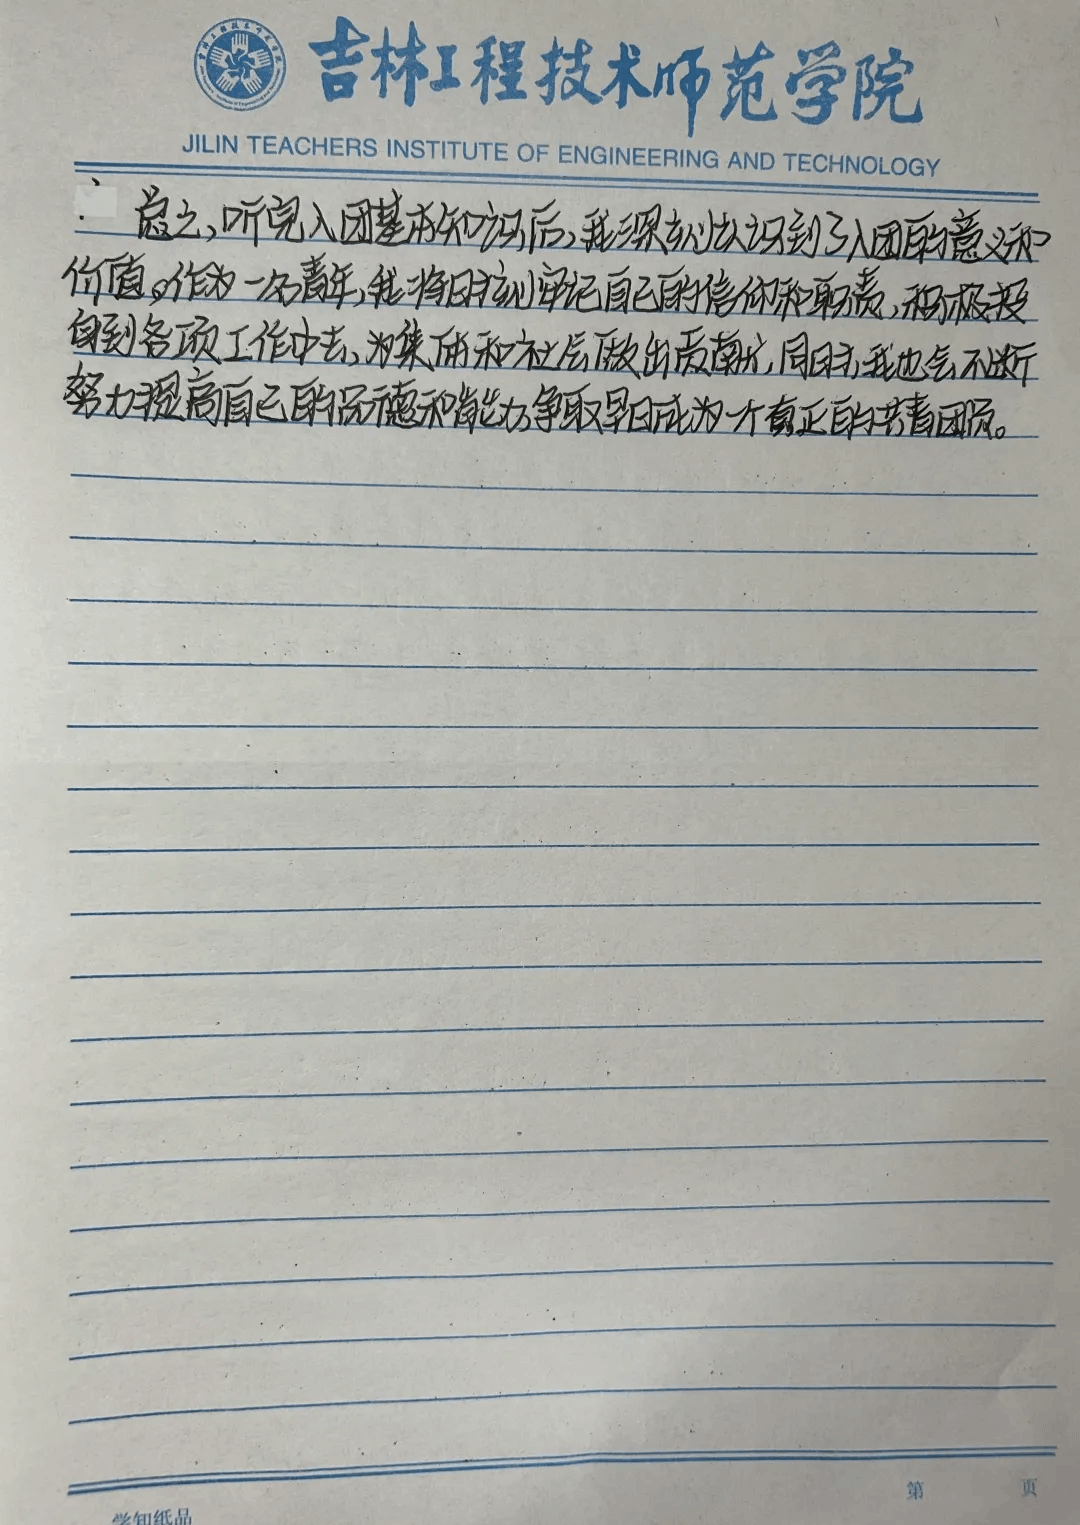 吉林工程技术师范学院
JILIN TEACHERS INSTITUTE OF ENGINEERING AND TECHNOLOGY
总之,听完入团基本知识后,我深刻认识到了入团的意义和
价值。作为一名青年,我将时刻牢记自己的信仰和职责,积极投
身到各项工作中去,为集团和社会做出贡献,同时,我也会不断
努力提高自己的品德和能力,争取早日成为一个真正的共青团员。
第 页
学知纸品